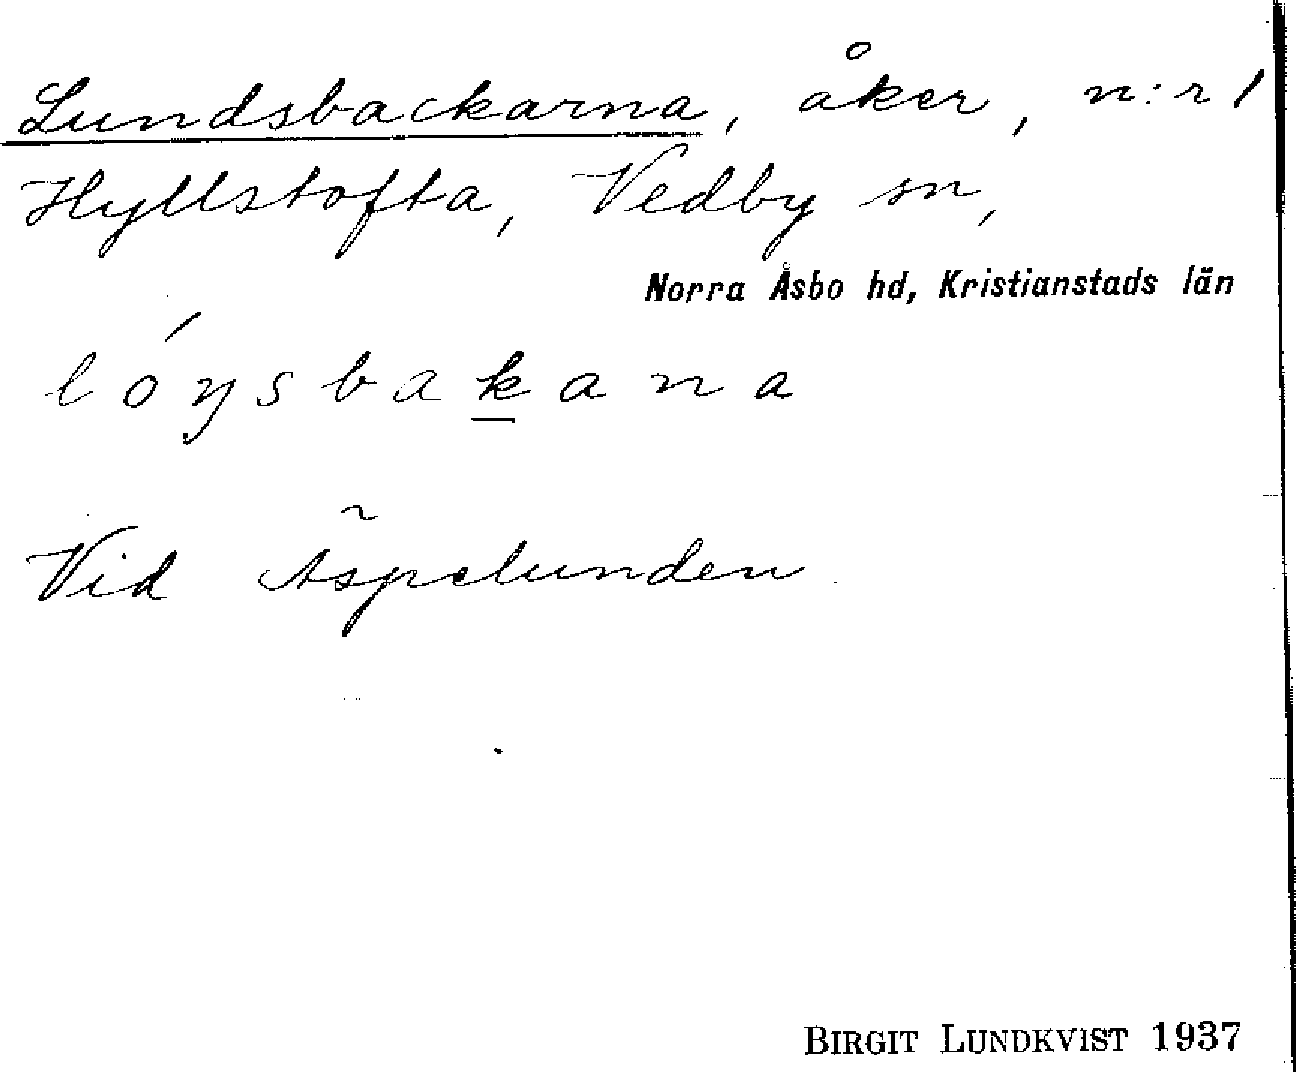 Lundsbackarna, åker, n:r 1
Hyllstofta, Vedby sn,
Norra Åsbo hd, Kristianstads län
lóŋsbakana
Vid Äspelunden
BIRGIT LUNDKVIST 1937